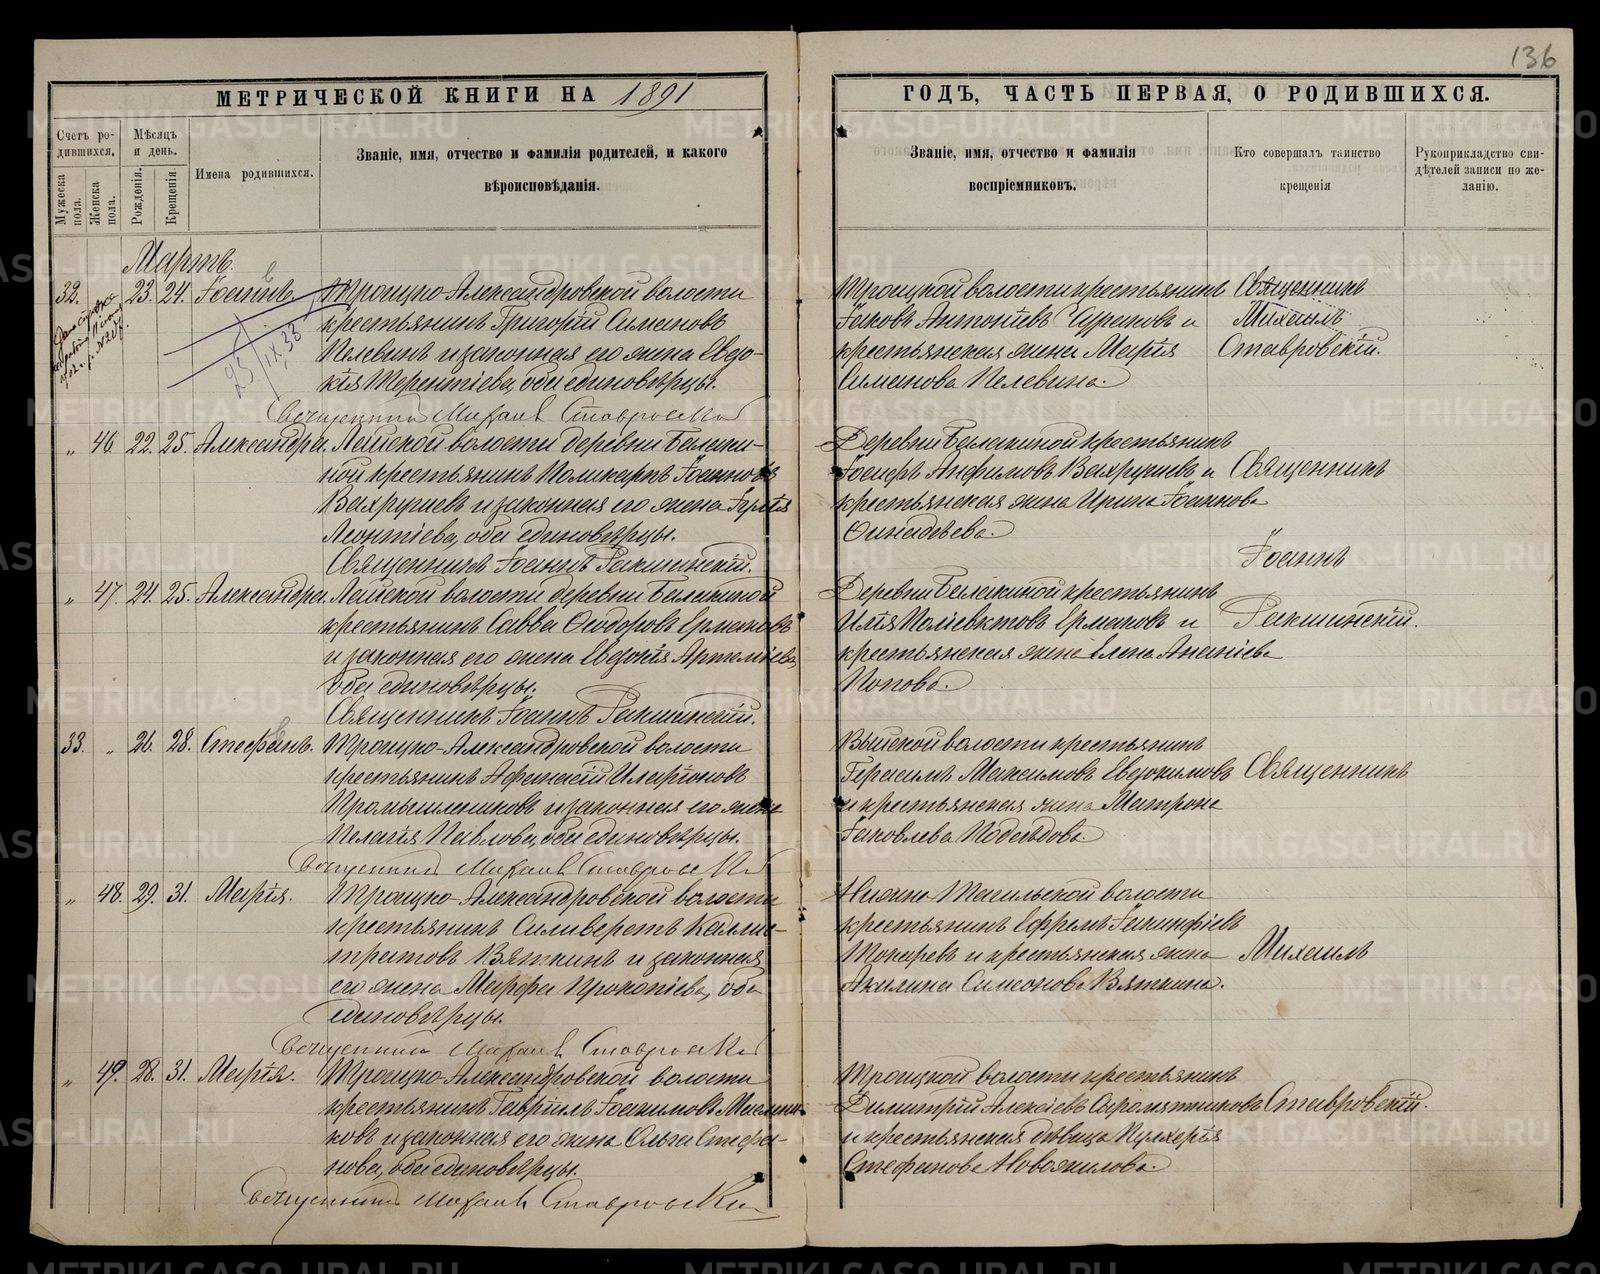 136
МЕТРИЧЕСКОЙ КНИГИ НА 1891
ГОДЪ, ЧАСТЬ ПЕРВАЯ, О РОДИВШИХСЯ.
Счетъ родившихся.
Мужеска пола.
Женска пола.
Мѣсяцъ и день.
Рожденія.
Крещенія.
Имена родившихся.
Званіе, имя, отчество и фамилія родителей, и какого
вѣроисповѣданія.
Званіе, имя, отчество и фамилія
воспріемниковъ.
Кто совершалъ таинство
крещенія
Рукоприкладство сви-
дѣтелей записи по же-
ланію.
Мартъ.
32. 23. 24. Іоаннъ Троицко-Александровской волости
крестьянинъ Григорій Симановъ
Пелевинъ и законная его жена Евдо-
кія Терентіева, оба единовѣрцы.
Священникъ Михаилъ Ставровскій
25/IX 33
Троицкой волости крестьянинъ
Іаковъ Антоніевъ и
крестьянская жена Марія
Симанова Пелевина.
Священникъ
Михаилъ
Ставровскій.
„ 46. 22. 25. Александра. Лайской волости деревни Балаки-
ной крестьянинъ Поликарпъ Іоанновъ
Вахрушевъ и законная его жена Іулія
Леонтіева, оба единовѣрцы.
Священникъ Іоаннъ Ракшинскій.
Деревни Балакиной крестьянинъ
Іосифъ Анфимовъ Вахрушевъ и
крестьянская жена Ирина Іоаннова
Ѳинадѣева.
Священникъ
Іоаннъ
Ракшинскій.
„ 47. 24. 25. Александра. Лайской волости деревни Балакиной
крестьянинъ Савва Ѳеодоровъ Ермаковъ
и законная его жена Евдокія Артеміева,
оба единовѣрцы.
Священникъ Іоаннъ Ракшинскій.
Деревни Балакиной крестьянинъ
Илія Поліевктовъ Ермаковъ и
крестьянская жена Елена Ананіева
Попова.
33. „ 26. 28. Стефанъ. Троицко-Александровской волости
крестьянинъ Афанасій Иларіоновъ
Промышленниковъ и законная его жена
Пелагія Павлова, оба единовѣрцы.
Священникъ Михаилъ Ставровскій
Выйской волости крестьянинъ
Герасимъ Максимовъ Евдокимовъ
и крестьянская жена Матрона
Іаковлева
Священникъ
„ 48. 29. 31. Марія. Троицко-Александровской волости
крестьянинъ Силиверстъ Каллис-
тратовъ Вяткинъ и законная
его жена Марфа Прокопіева, оба
единовѣрцы.
Священникъ Михаилъ Ставровскій
Нижне-Тагильской волости
крестьянинъ Ефремъ Іакинфіевъ
Токаревъ и крестьянская жена
Акилина Симеонова Вяткина.
Михаилъ
„ 49. 28. 31. Марія. Троицко-Александровской волости
крестьянинъ Гавріилъ Іоакимовъ Маслен-
ковъ и законная его жена Ольга Стефа-
нова, оба единовѣрцы.
Священникъ Михаилъ Ставровскій
Троицкой волости крестьянинъ
Димитрій Алексіевъ Сыромятниковъ
и крестьянская дѣвица Пулхерія
Стефанова Новожилова.
Ставровскій.
METRIKI.GASO-URAL.RU